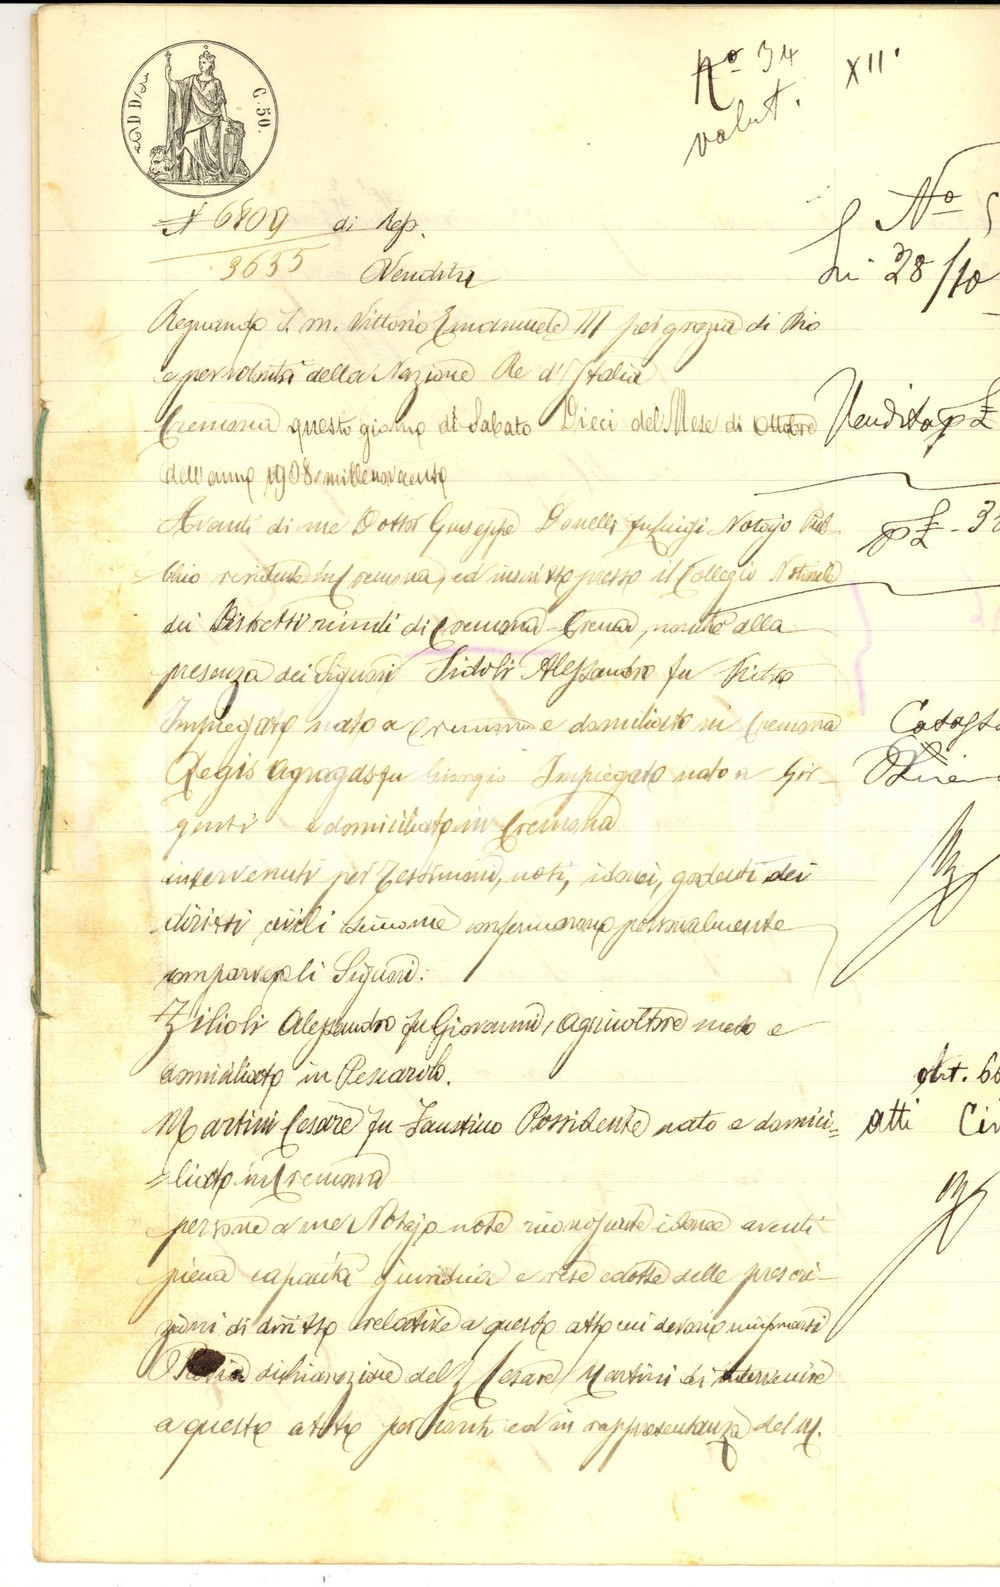 C. 50.
No 34
XII.
valut.
N 6809 di Rep.
3635 Vendita
Regnando S. M. Vittorio Emanuele III per grazia di Dio
e per volontà della Nazione Re d'Italia
Cremona questo giorno di Sabato Dieci del Mese di Ottobre
dell'anno 1908 millenovecento
Avanti di me Dottor Giuseppe Donelli fu Luigi Notajo Pub-
blico residente in Cremona, ed inscritto presso il Collegio Notarile
dei Distretti riuniti di Cremona-Crema, nonchè alla
presenza dei Signori Sidoli Alessandro fu Pietro
Impiegato nato a Cremona e domiliato in Cremona
Regis Agragas fu Giorgio Impiegato nato a Gir-
genti e domiciliato in Cremona
intervenuti per Testimoni, noti, idonei, godenti dei
diritti civili siccome confermarono personalmente
comparvero li Signori:
Zilioli Alessandro fu Giovanni, Agricoltore nato e
domiciliato in Pescarolo.
Martini Cesare fu Faustino Possidente nato e domici=
=liato in Cremona
persone a me Notajo note riconosciute idonee aventi
piena capacità giuridica e rese edotte delle prescri-
zioni di diritto relative a questo atto cui devono uniformarsi
Previa dichiarazione del Cesare Martini di intervenire
a questo atto per conto ed in rappresentanza del M.
No
li 28/10
Vendita p £
p £ - 3
Art. 66
atti Civ